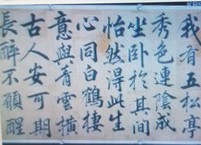 我有五松亭
秀色連陰成
坐卧於其間
怡然得此生
心同白鶴棲
意與青雲橫
古人安可期
長醉不願醒